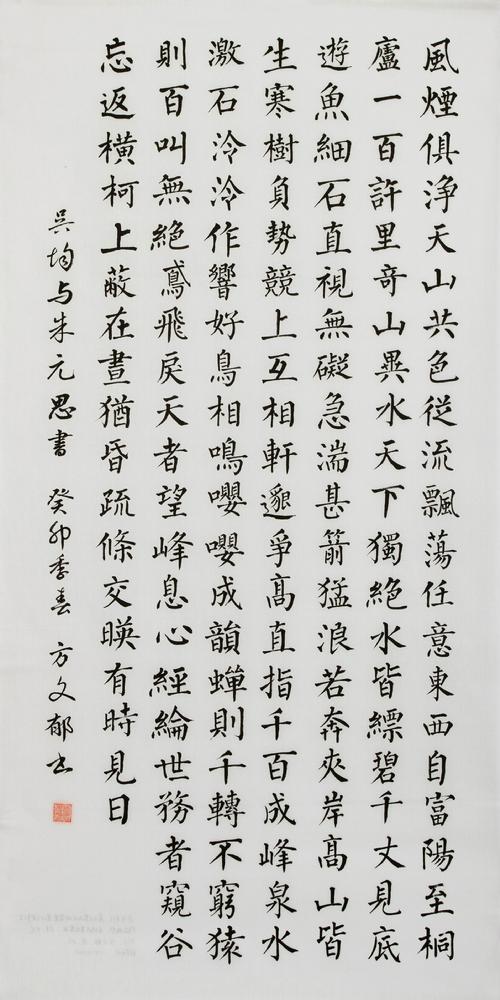 風煙俱浄天山共色従流飄蕩任意東西自富陽至桐
廬一百許里奇山異水天下獨絕水皆縹碧千丈見底
遊魚細石直視無礙急湍甚箭猛浪若奔夾岸髙山皆
生寒樹負勢競上互相軒邈爭髙直指千百成峰泉水
激石泠泠作響好鳥相鳴嚶嚶成韻蟬則千轉不窮猿
則百叫無絕鳶飛戾天者望峰息心經綸世務者窺谷
忘返橫柯上蔽在晝猶昏疏條交暎有時見日
吳均与朱元思書 癸卯季春 方文郁书